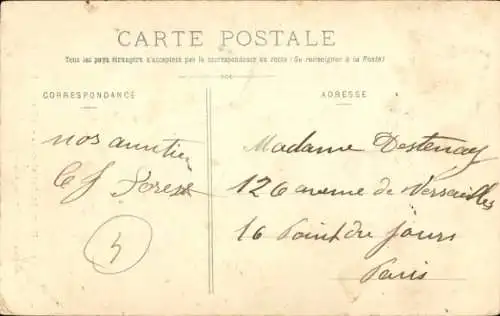 CARTE POSTALE
Tous les pays étrangers n'acceptent pas la correspondance au recto (Se renseigner à la Poste)
CORRESPONDANCE
ADRESSE
nos
Madame Destenay
126 avenue de Versailles
16 Point du Jour
Paris